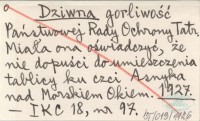 Dziwna gorliwość
Państwowej Rady Ochrony Tatr.
Miała ona oświadczyć, że
nie dopuści do umieszczenia
tablicy ku czci Asnyka
nad Morskiem Okiem. 1927.
— IKC 18, nr 97.